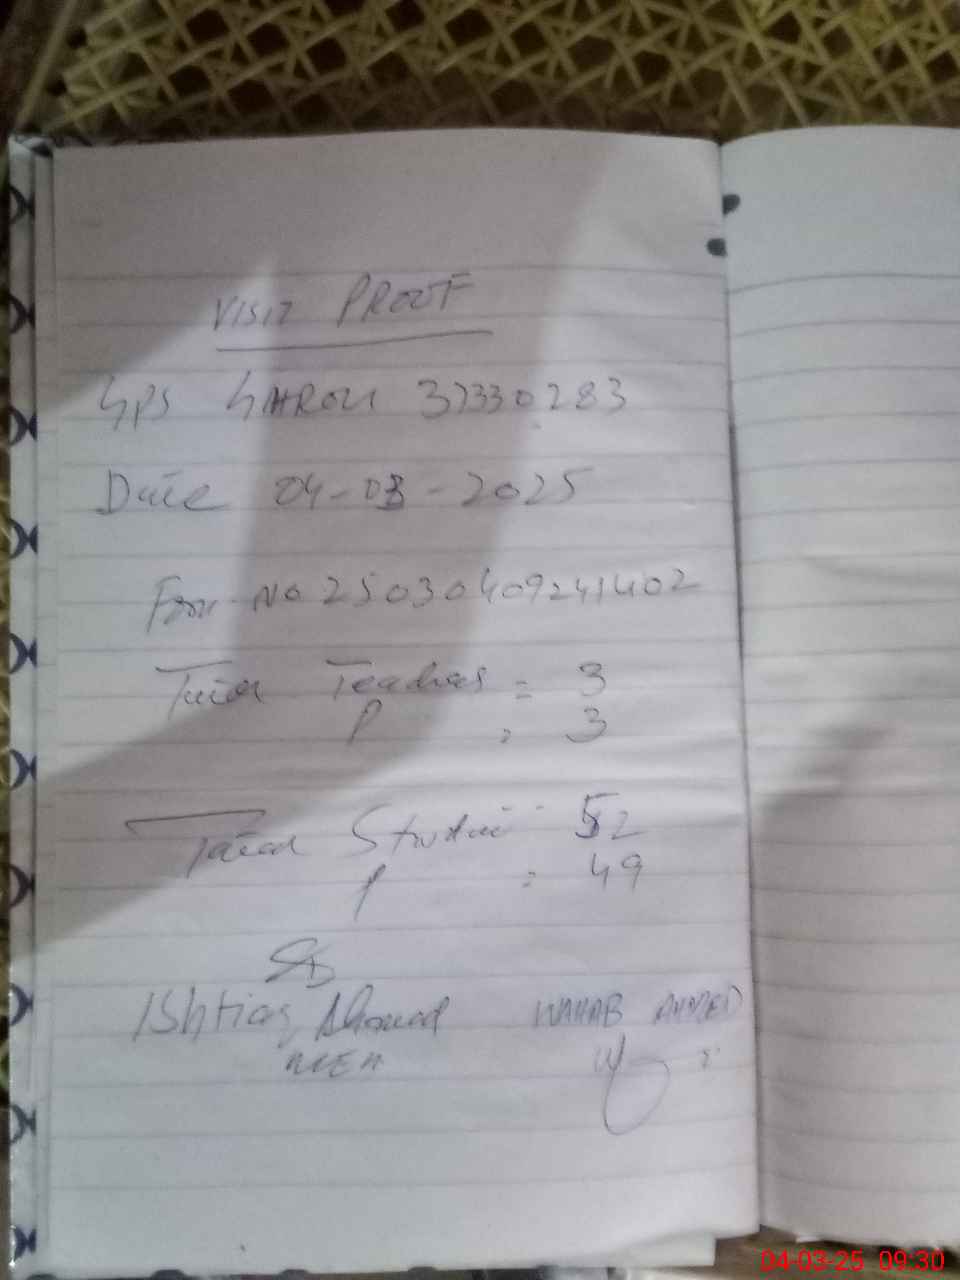 VISIT PROOF
GPS GAHROU 37330283
Date 04-03-2025
Form No 25030409241402
Total Teachers = 3
P = 3
Total Student 52
P = 49
Ishtiaq Ahmad WAHAB AHMED
MEA
04-03-25 09:30